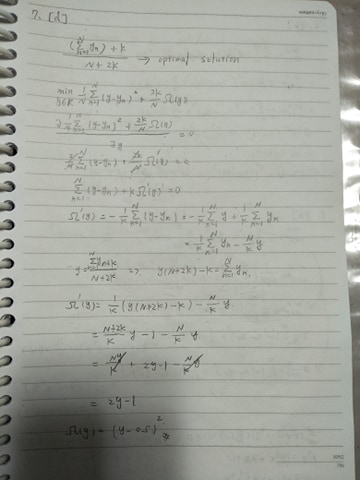 7. [d]
((Σ_{n=1}^{N} y_n) + K) / (N + 2K) → optimal solution
min_{y∈R} 1/N Σ_{n=1}^{N} (y-y_n)² + 2K/N Ω(y)
∂ 1/N Σ_{n=1}^{N} (y-y_n)² + 2K/N Ω(y) / ∂y = 0
2/N Σ_{n=1}^{N} (y-y_n) + 2K/N Ω'(y) = 0
Σ_{n=1}^{N} (y-y_n) + K Ω'(y) = 0
Ω'(y) = -1/K Σ_{n=1}^{N} (y-y_n) = -1/K Σ_{n=1}^{N} y + 1/K Σ_{n=1}^{N} y_n
= 1/K Σ_{n=1}^{N} y_n - N/K y
y = (Σ_{n=1}^{N} y_n + K) / (N+2K) => y(N+2K) - K = Σ_{n=1}^{N} y_n,
Ω'(y) = 1/K (y(N+2K) - K) - N/K y
= (N+2K)/K y - 1 - N/K y
= Ny/K + 2y - 1 - N/K y
= 2y - 1
Ω(y) = (y - 0.5)²